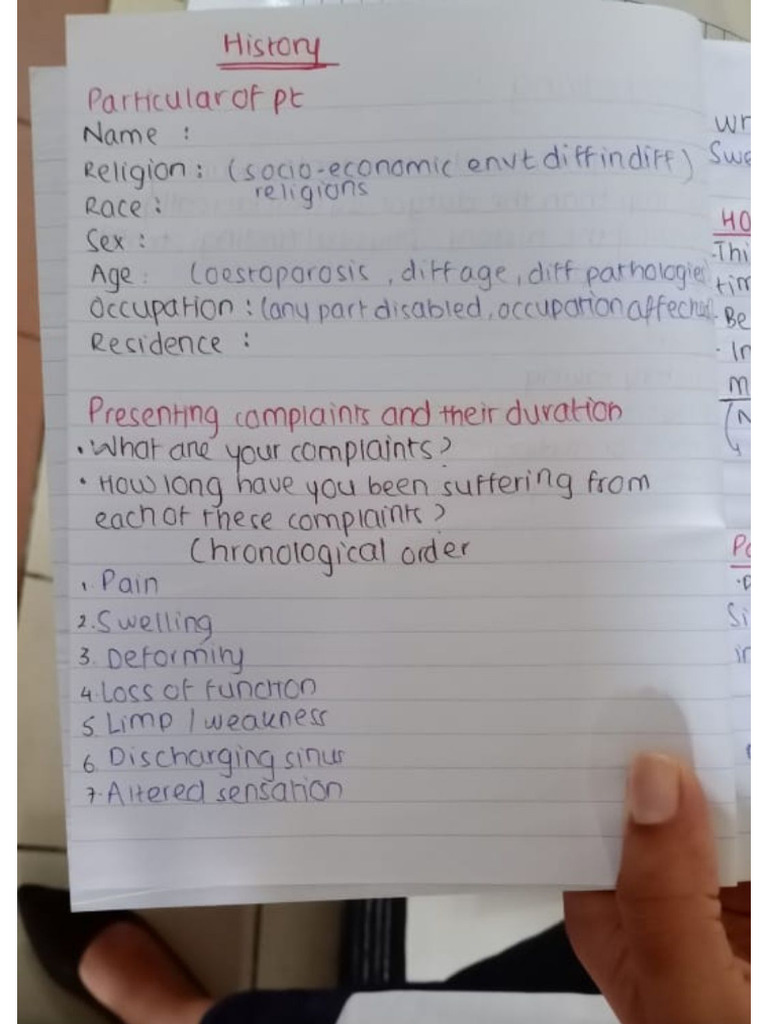 History
Particular of pt
Name :
Religion : (socio-economic envt diff in diff)
religions
Race :
Sex :
Age : (oestoporosis , diff age, diff pathologies
Occupation : (any part disabled, occupation affected
Residence :
Presenting complaints and their duration
• What are your complaints?
• How long have you been suffering from
each of these complaints?
Chronological order
1. Pain
2. Swelling
3. Deformity
4. Loss of function
5. Limp / weakness
6. Discharging sinus
7. Altered sensation
wr
Swe
HO
-Thi
tim
- Be
- In
m
Si
in